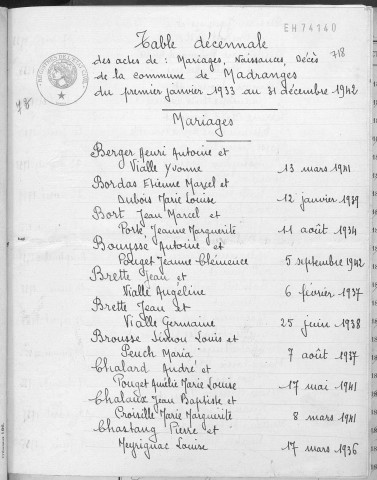 EH74140
Table décennale
des actes de : Mariages, Naissances, Décès 718
de la commune de Madranges
du premier janvier 1933 au 31 décembre 1942
Mariages
Berger Henri Antoine et
Vialle Yvonne 13 mars 1941
Bordas Etienne Marcel et
Dubois Marie Louise 12 janvier 1939
Bort Jean Marcel et
Porte Jeanne Marguerite 11 août 1934
Bouysse Antoine et
Pouget Jeanne Clémence 5 septembre 1942
Brette Jean et
Vialle Angéline 6 février 1937
Brette Jean et
Vialle Germaine 25 juin 1938
Brousse Simon Louis et
Peuch Maria 7 août 1937
Chalard André et
Pouget Amélie Marie Louise 17 mai 1941
Chalaux Jean Baptiste et
Croisille Marie Marguerite 8 mars 1941
Chastang Pierre et
Meyrignac Louise 17 mars 1936